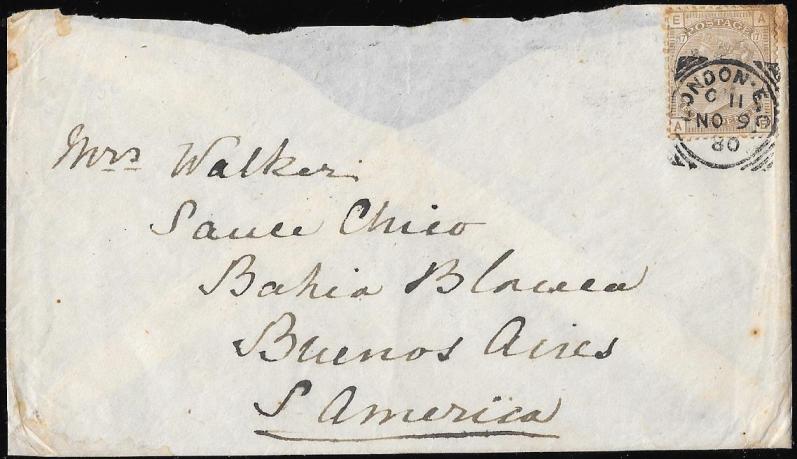 E A
POSTAGE
LONDON·E.C
C 11
NO 9
80
A E
Mrs Walker
Sauce Chico
Bahia Blanca
Buenos Aires
S America